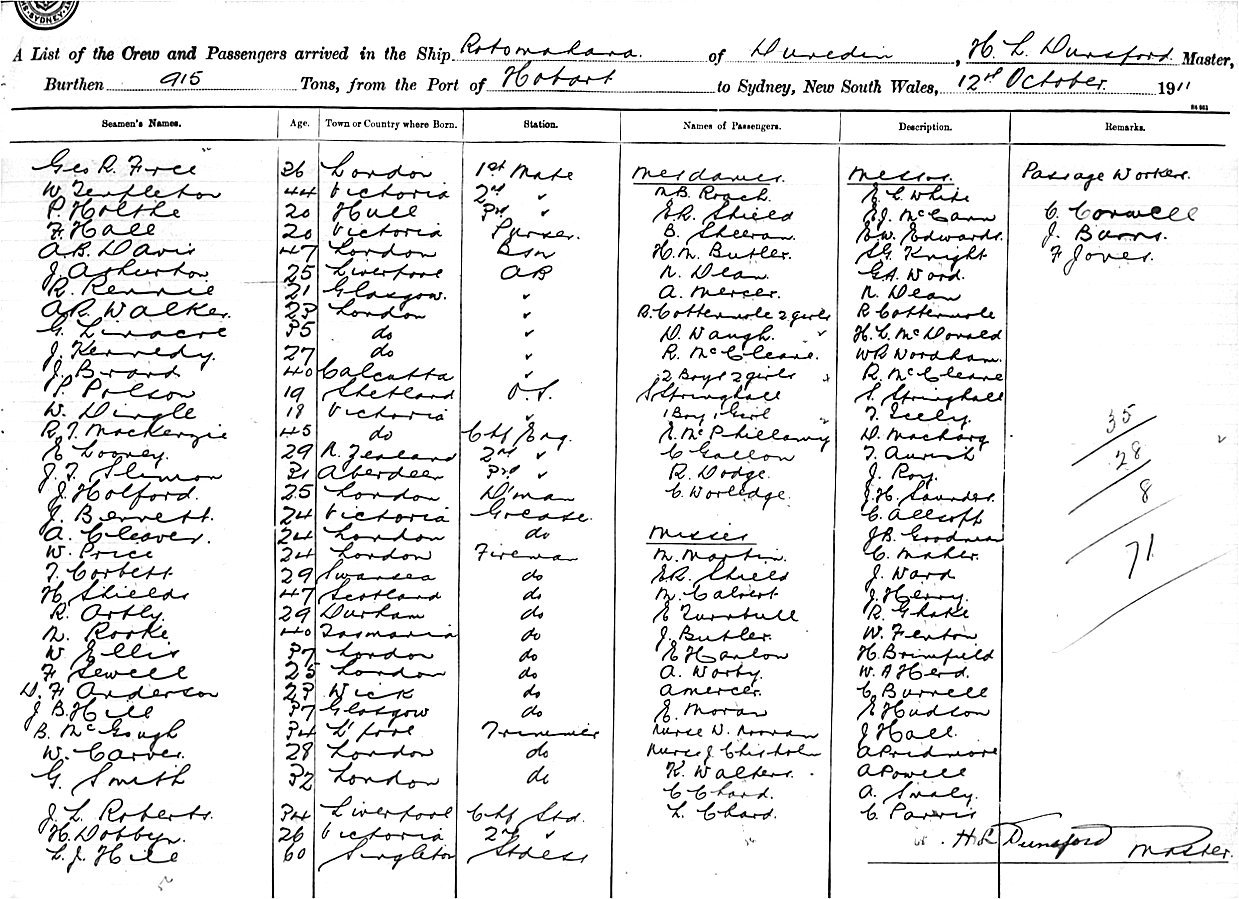 SYDNEY
A List of the Crew and Passengers arrived in the Ship Rotomahana of Dunedin, H L Dunsford Master,
Burthen 915 Tons, from the Port of Hobart to Sydney, New South Wales, 12th October 1911
Seamen's Names. Age. Town or Country where Born. Station. Names of Passengers. Description. Remarks.
Geo R. Free 26 London 1st Mate Mesdames Messrs Passage Workers.
W. Templeton 44 Victoria 2nd " M.B. Roach. E. L. White
P. Holthe 20 Hull 3rd " E.R. Shield E.J. McCann C. Corwell
F. Hall 20 Victoria Purser. B. Sheeran. E.W. Edwards. J. Burns.
A.B. Davis 47 London Bsn H. M. Butler. S.G. Knight F Jones.
J. Asherton 25 Liverpool AB N. Dean G.A. Word.
R. Rennie 21 Glasgow. " A. Mercer. N. Dean
A.R. Walker. 23 London " R. Cottermole 2 girls R Cottermole
G. Linacre 35 do " D. Waugh. " H. L. McDonald
J. Kennedy. 27 do " R. McCleane. W.R. Wordham.
J. Broad 40 Calcutta " 2 Boys 2 girls R. McCleane
P. Polson 19 Shetland O.S. S Stringhall S. Stringhall
W. Dingle 18 Victoria " 1 Boy 1 Girl T. Seely. 35
R. T. MacKenzie 45 do Chf Eng. E. McPhillamy D. Macharg
E Looney. 29 N. Zealand 2nd " C Gallon 28
J. T. Slimon 31 Aberdeen 3rd " R. Dodge. J. Roy.
J. Holford. 25 London D'man C. Worledge. J.H. Saunders. 8
J. Bennett. 24 Victoria Grease. C. Allsoft
A. Cleaver. 24 London do Misses J.B. Goodman
W. Price 24 London Fireman M. Martin. C. Maher. 71
T. Corbett 29 Swansea do E.R. Shield J. Ward
H Shields 47 Scotland do M. Calvert J. Henry.
R. Ortly. 29 Durham do E Turnbull R. Ghake
N. Rorke 40 Tasmania do J. Butler. W. Fenton
W Ellis 37 London do E Hanlon H. Brimfield
F Sewell 25 London do A. Worby. W. A Herd.
D. F Anderson 23 Wick do A Mercer. C Burrell
J. B. Hill 37 Glasgow do E. Moran E Hudson
B. McGough 34 L'pool Trimmer Nurse N. Moran J Hall.
W. Carver. 28 London do Nurse J. Chisholm A Pridmore
G. Smith 32 London do K. Walters. A Powell
C Chard. A.
J. L. Roberts. 34 Liverpool Chf Std. L. Chard. C Parris
H. Dobbyn. 26 Victoria 2nd " H.L. Dunsford
L. J. Hill 60 Singleton Stdess Master.